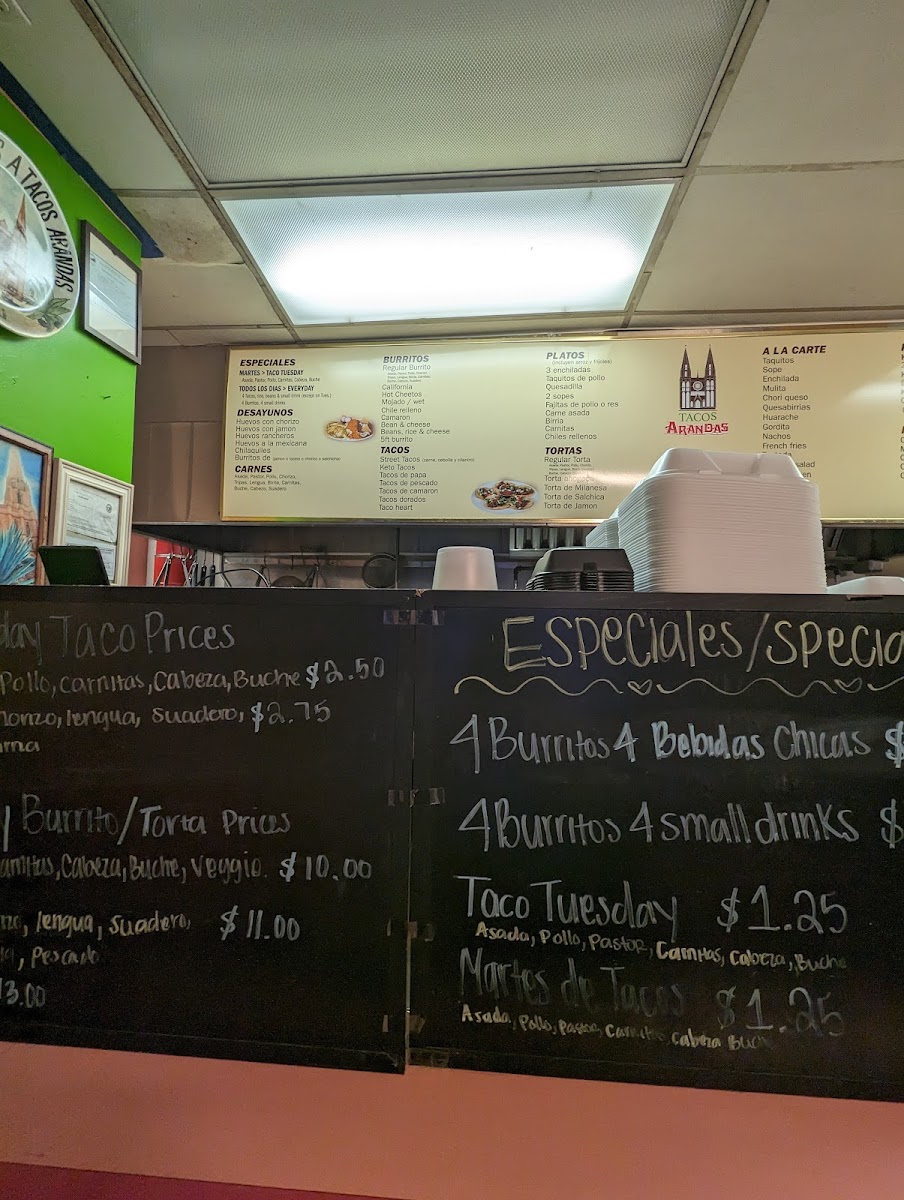 A TACOS ARANDAS
ESPECIALES
MARTES > TACO TUESDAY
Asada, Pastor, Pollo, Carnitas, Cabeza, Buche
TODOS LOS DIAS > EVERYDAY
4 Burritos, 4 small drinks
DESAYUNOS
Huevos con chorizo
Huevos con jamon
Huevos rancheros
Huevos a la mexicana
Chilaquiles
Burritos de
CARNES
Asada, Pastor, Pollo, Chorizo,
Tripas, Lengua, Birria, Carnitas,
Buche, Cabeza, Suadero.
BURRITOS
Regular Burrito
California
Hot Cheetos
Mojado / wet
Chile relleno
Camaron
Bean & cheese
Beans, rice & cheese
5ft burrito
TACOS
Street Tacos (carne, cebolla y cilantro)
Keto Tacos
Tacos de papa
Tacos de pescado
Tacos de camaron
Tacos dorados
Taco heart
PLATOS
(incluyen arroz y frijoles)
3 enchiladas
Taquitos de pollo
Quesadilla
2 sopes
Fajitas de pollo o res
Carne asada
Birria
Carnitas
Chiles rellenos
TORTAS
Regular Torta
Torta ahogada
Torta de Milanesa
Torta de Salchica
Torta de Jamon
TACOS
ARANDAS
A LA CARTE
Taquitos
Sope
Enchilada
Mulita
Chori queso
Quesabirrias
Huarache
Gordita
Nachos
French fries
day Taco Prices
Pollo, Carnitas, Cabeza, Buche $2.50
lengua, Suadero, $2.75
Burrito/Torta Prices
Cabeza, Buche, Veggie. $10.00
lengua, Suadero, $11.00
Pescado
3.00
Especiales/Specia
4 Burritos 4 Bebidas Chicas $
4 Burritos 4 small drinks $
Taco Tuesday $1.25
Asada, Pollo, Pastor, Carnitas, Cabeza, Buche
Martes de Tacos $1.25
Asada, Pollo, Pastor, Carnitas, Cabeza Buche